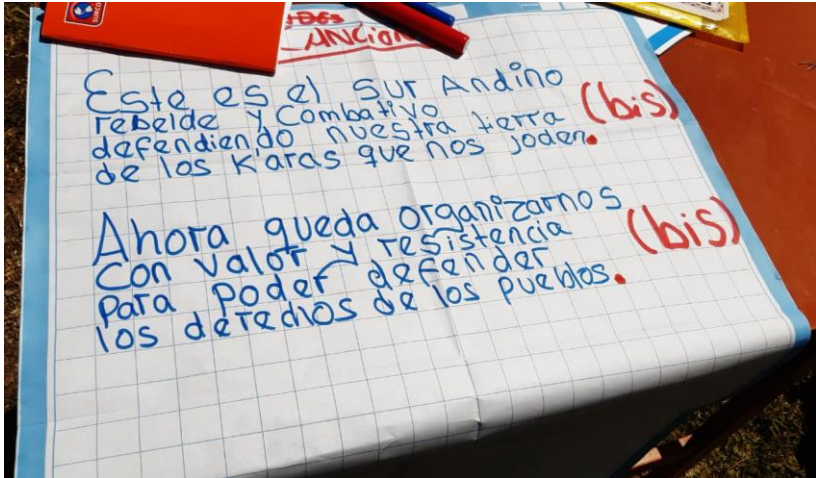 CANCION
Este es el Sur Andino
rebelde y Combativo
defendiendo nuestra tierra (bis)
de los K'aras que nos joden.
Ahora queda organizarnos
Con valor y resistencia (bis)
para poder defender
los derechos de los pueblos.